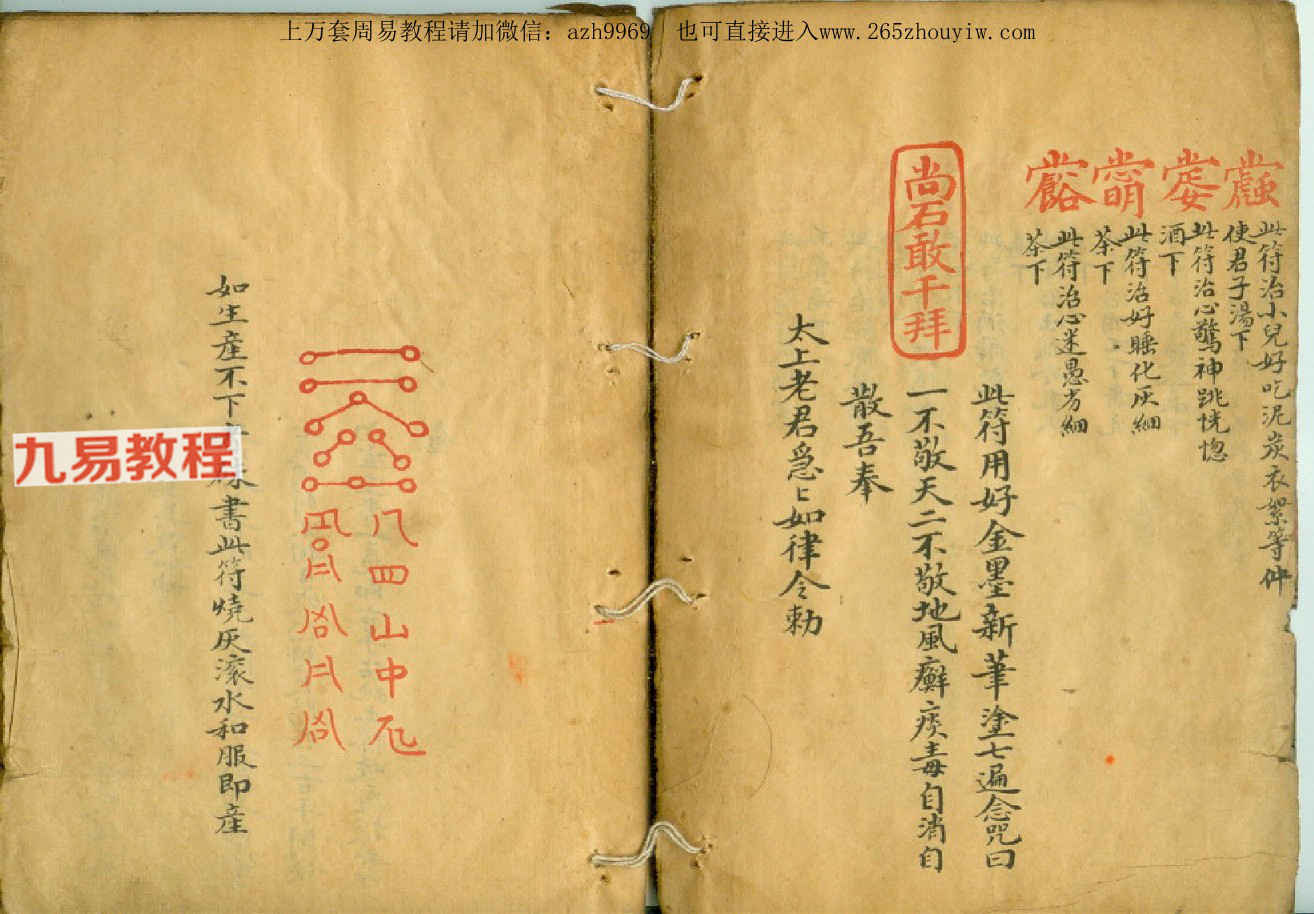 上万套周易教程请加微信：azh9969 也可直接进入www.265zhouyiw.com
此符治小兒好吃泥炭衣絮等件
使君子湯下
此符治心驚神跳恍惚
酒下
此符治好睡化灰細
茶下
此符治心迷愚方細
茶下
尚石敢干拜
此符用好金墨新筆塗七遍念咒曰
一不敬天二不敬地風癬痰毒自消自
散吾奉
太上老君急〻如律令勅
八四山中
如生產不下
書此符燒灰滾水和服即產
九易教程